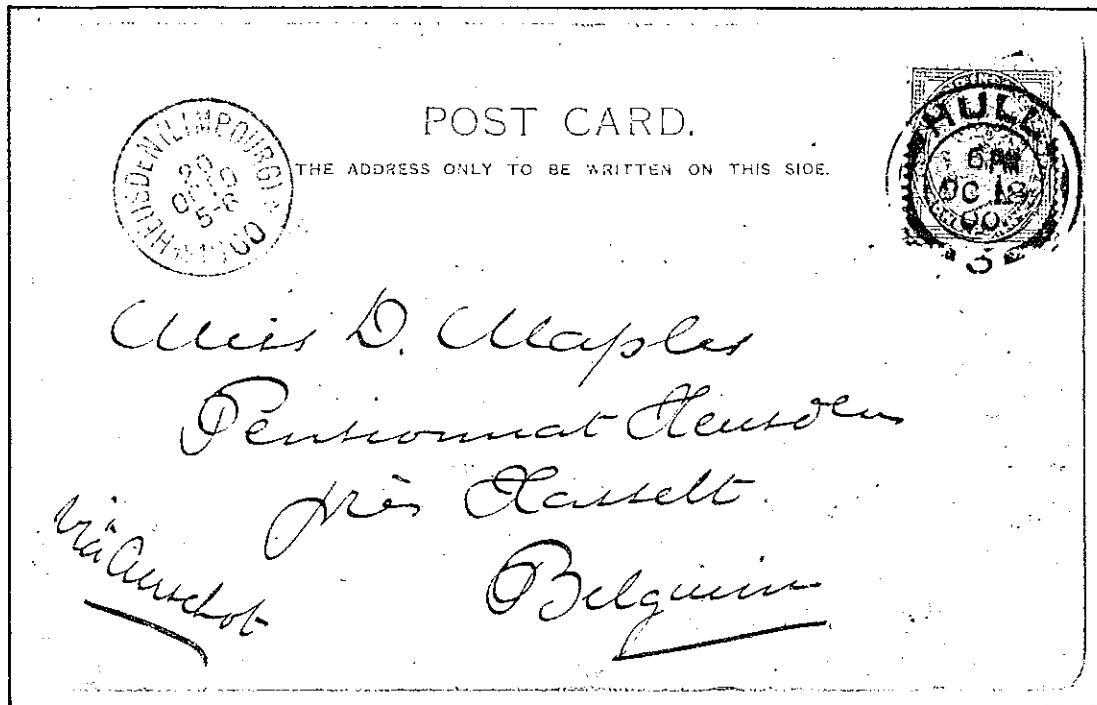 POST CARD.
THE ADDRESS ONLY TO BE WRITTEN ON THIS SIDE.
HEUSDEN (LIMBOURG)
20
OCT
5-6
1900
HULL
6 PM
OC 18
00
3
Miss D. Maples
Pensionnat Heusden
près Hasselt.
Belguim
Via Aerschot